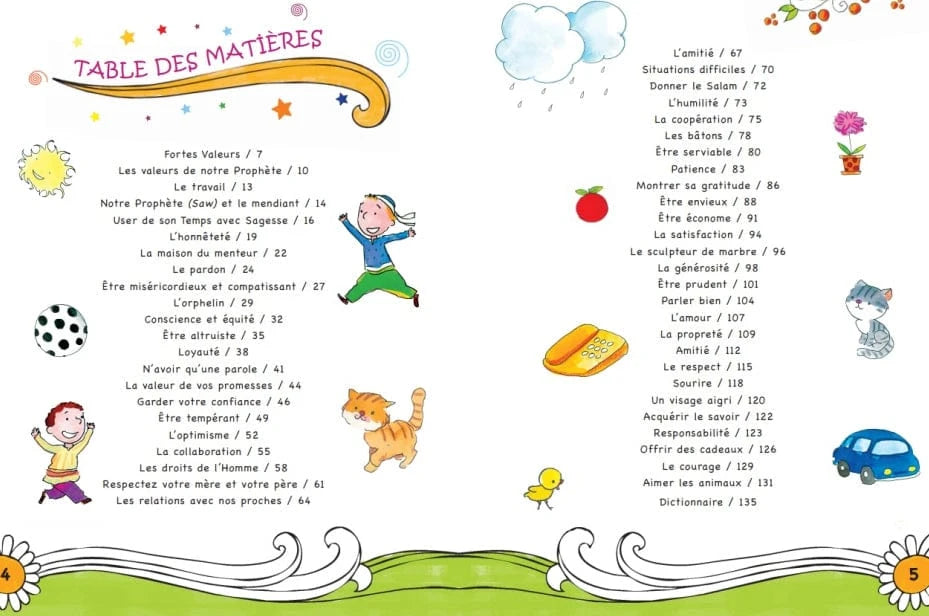 TABLE DES MATIÈRES
Fortes Valeurs / 7
Les valeurs de notre Prophète / 10
Le travail / 13
Notre Prophète (Saw) et le mendiant / 14
User de son Temps avec Sagesse / 16
L'honnêteté / 19
La maison du menteur / 22
Le pardon / 24
Être miséricordieux et compatissant / 27
L'orphelin / 29
Conscience et équité / 32
Être altruiste / 35
Loyauté / 38
N'avoir qu'une parole / 41
La valeur de vos promesses / 44
Garder votre confiance / 46
Être tempérant / 49
L'optimisme / 52
La collaboration / 55
Les droits de l'Homme / 58
Respectez votre mère et votre père / 61
Les relations avec nos proches / 64
4
L'amitié / 67
Situations difficiles / 70
Donner le Salam / 72
L'humilité / 73
La coopération / 75
Les bâtons / 78
Être serviable / 80
Patience / 83
Montrer sa gratitude / 86
Être envieux / 88
Être économe / 91
La satisfaction / 94
Le sculpteur de marbre / 96
La générosité / 98
Être prudent / 101
Parler bien / 104
L'amour / 107
La propreté / 109
Amitié / 112
Le respect / 115
Sourire / 118
Un visage aigri / 120
Acquérir le savoir / 122
Responsabilité / 123
Offrir des cadeaux / 126
Le courage / 129
Aimer les animaux / 131
Dictionnaire / 135
5